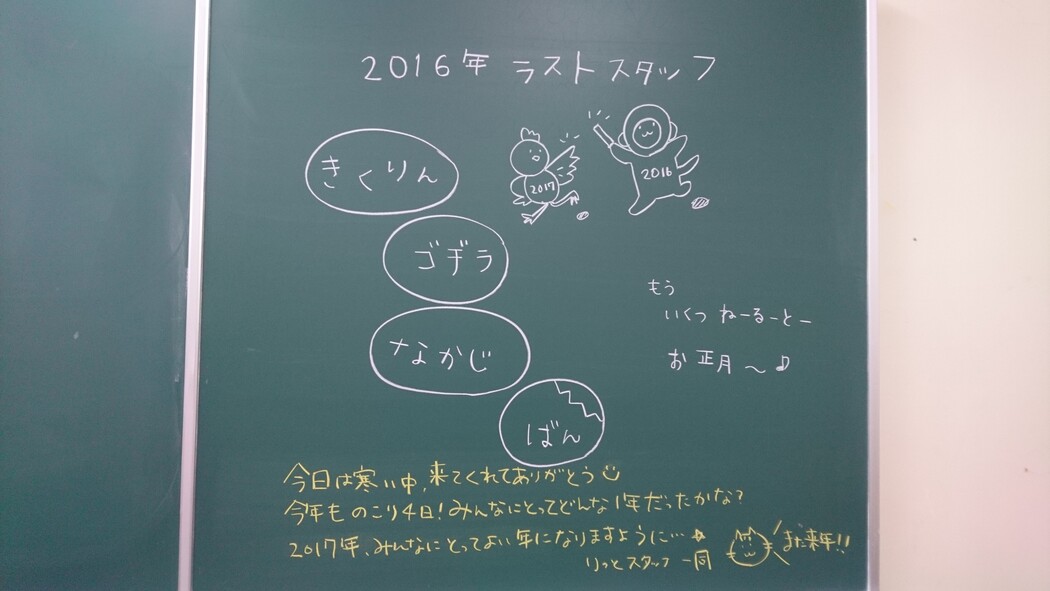 2016年 ラストスタッフ
きくりん
2017
2016
ゴヂラ
なかじ
ばん
もう
いくつ ねーるーとー
お正月～♪
今日は寒い中、来てくれてありがとう
今年ものこり4日！みんなにとってどんな1年だったかな？
2017年、みんなにとってよい年になりますように…☆
りっとスタッフ一同
また来年!!